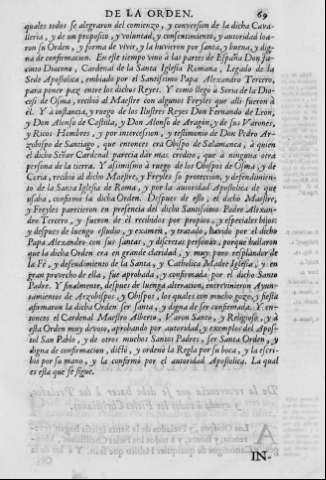 DE LA ORDEN. 69
quales todos se alegraron del comienço, y conversion de la dicha Cava-
lleria, y de un proposito, y voluntad, y consentimiento, y autoridad loa-
ron su Orden, y forma de vivir, y la huvieron por santa, y buena, y dig-
na de confirmacion. En este tiempo vino à las partes de España Don Ja-
cinto Diacono, Cardenal de la Santa Iglesia Romana, Legado de la
Sede Apostolica, embiado por el Santissimo Papa Alexandro Tercero,
para poner paz entre los dichos Reyes. Y como llegò à Soria de la Dio-
cesi de Osma, recibiò al Maestre con algunos Freyles que alli fueron à
èl. Y à instancia, y ruego de los Illustres Reyes Don Fernando de Leon,
y Don Alonso de Castilla, y Don Alonso de Aragon, y de sus Varones,
y Ricos Hombres, y por intercession, y testimonio de Don Pedro Ar-
zobispo de Santiago, que entonces era Obispo de Salamanca, à quien
el dicho Señor Cardenal parecia dàr mas credito, que à ninguna otra
persona de la tierra. Y assimismo à ruego de los Obispos de Osma, y de
Coria, recibiò al dicho Maestre, y Freyles so proteccion, y defendimien-
to de la Santa Iglesia de Roma, y por la autoridad Apostolica de que
usaba, confirmò la dicha Orden. Despues de esto, el dicho Maestre,
y Freyles parecieron en presencia del dicho Santissimo Padre Alexan-
dro Tercero, y fueron de èl recibidos por propios, y especiales hijos:
y despues de luengo estudio, y examen, y tratado, havido por el dicho
Papa Alexandro con sus santas, y discretas personas, porque hallaron
que la dicha Orden era en grande claridad, y muy puro resplandor de
la Fè, y defendimiento de la Santa, y Catholica Madre Iglesia, y en
gran provecho de ella, fue aprobada, y confirmada por el dicho Santo
Padre. Y finalmente, despues de luenga altercacion, entrevinieron Ayun-
tamientos de Arzobispos, y Obispos, los quales con mucho gozo, y fiesta
afirmaron la dicha Orden ser santa, y digna de ser confirmada. Y en-
tonces el Cardenal Maestre Alberto, Varon Santo, y Religioso, y à
esta Orden muy devoto, aprobando por autoridad, y exemplos del Apos-
tol San Pablo, y de otros muchos Santos Padres, ser Santa Orden, y
digna de confirmacion, dictò, y ordenò la Regla por su boca, y la escri-
biò por su mano, y la confirmò por el autoridad Apostolica. La qual
es esta que se sigue.
IN-